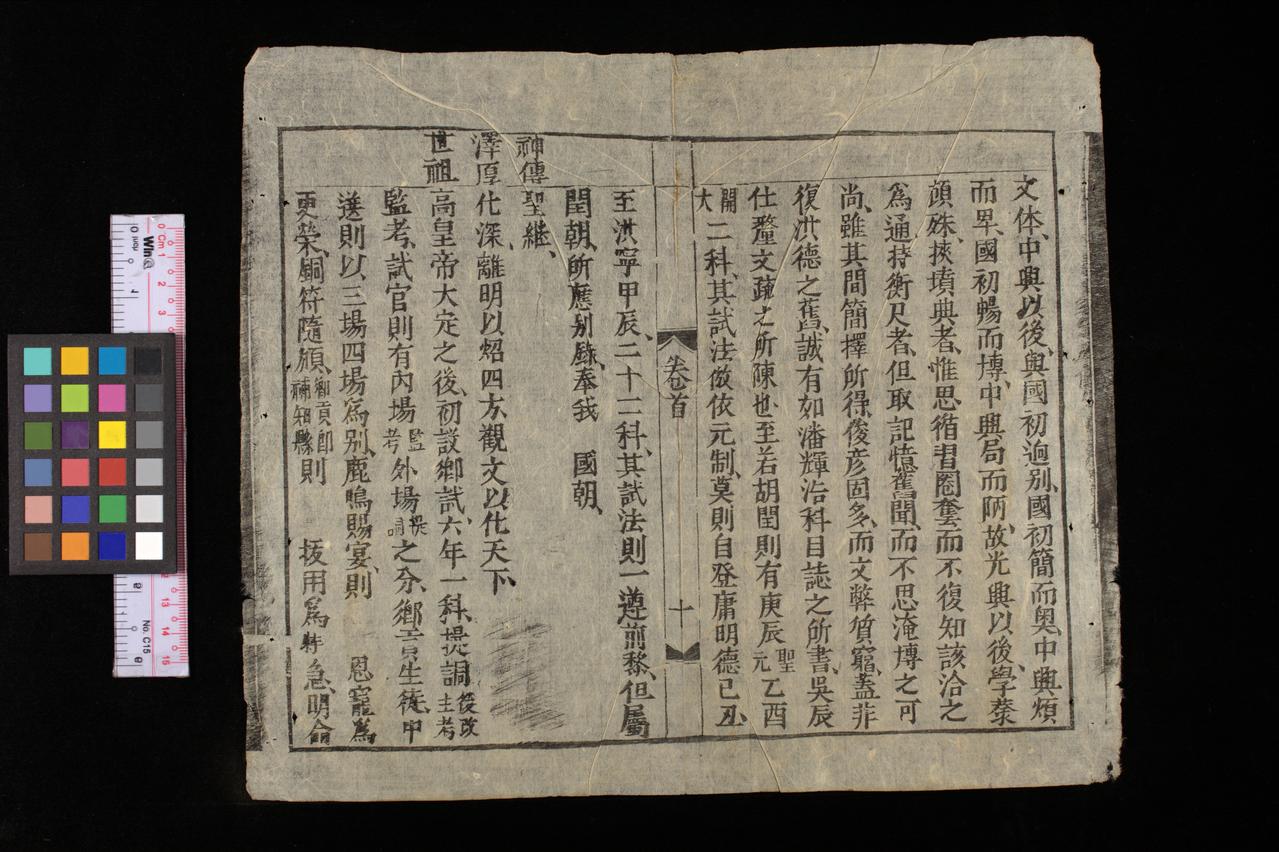 文体中興以後、與國初逈别、國初簡而奥、中興煩
而卑、國初暢而博、中興局而陋、故光興以後、學業
頗殊、挾墳典者、惟思循習圈套、而不復知該洽之
爲通、持衡尺者、但取記憶舊聞、而不思淹博之可
尚、雖其間簡擇所得、俊彦固多、而文弊質竆、蓋非
復洪德之舊、誠有如潘輝洽科目誌之所書、吳辰
仕釐文疏之所陳也、至若胡閏則有庚辰聖元乙酉
開大二科、其試法倣依元制、莫則自登庸明德己丑、
至洪寧甲辰、二十二科、其試法則一遵前黎、但屬
閏朝、所應别録、奉我 國朝、
神傳聖繼、
澤厚化深、離明以炤四方、觀文以化天下、
世祖高皇帝大定之後、初設鄉試、六年一科、提調後改主考
監考、試官則有内場監考外場提調之分、鄉貢生徒、甲
選則以三場四場爲别、鹿鳴賜宴、則 恩寵爲
更榮、銅符隨頒、鄉貢即補知縣則 拔用爲特急、明命
卷首
十
Win
Cm 1 2 3
13 14 15
No. C15